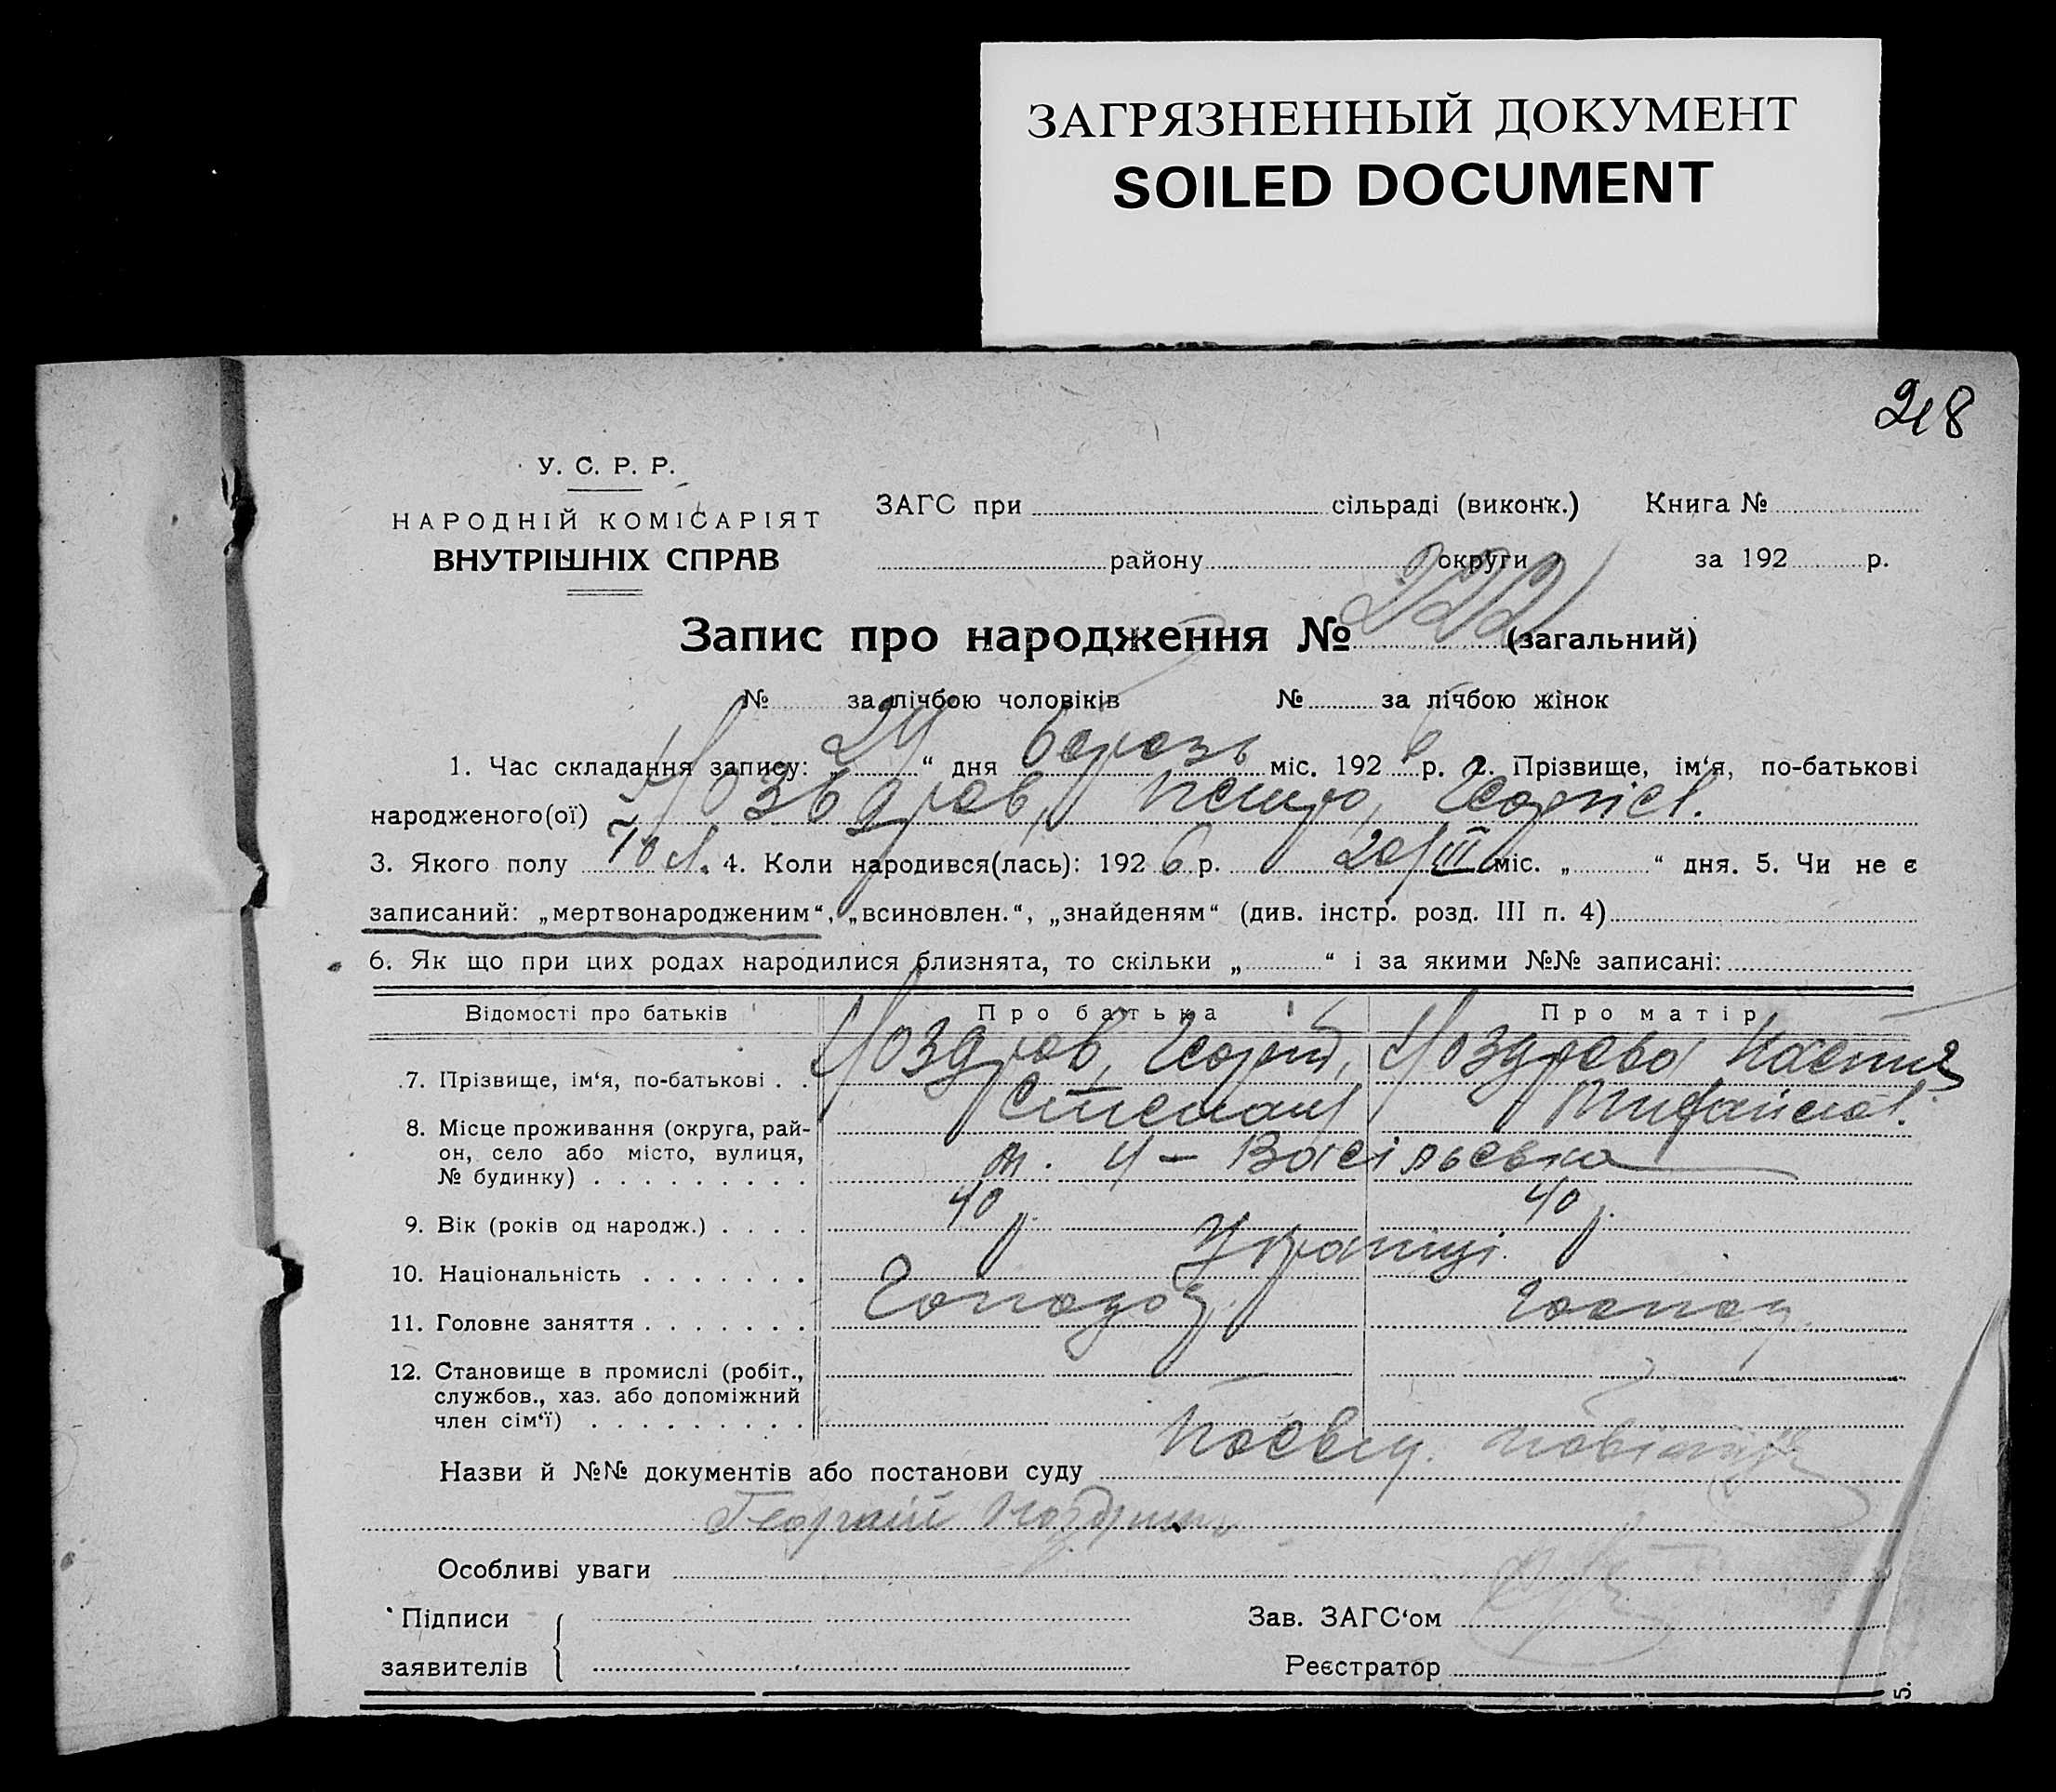 ЗАГРЯЗНЕННЫЙ ДОКУМЕНТ
SOILED DOCUMENT
218
У. С. Р. Р.
НАРОДНІЙ КОМІСАРІЯТ
ВНУТРІШНІХ СПРАВ
ЗАГС при сільраді (виконк.) Книга №
району округи за 192 р.
Запис про народження № 222 (загальний)
№ за лічбою чоловіків № за лічбою жінок
1. Час складання запису: „29“ дня березь міс. 192 6 р. 2. Прізвище, ім‘я, по-батькові
народженого(ої) Ноздрев, Петро, Георгієв.
3. Якого полу чол. 4. Коли народився(лась): 192 6 р. 20/III міс. „ “ дня. 5. Чи не є
записаний: „мертвонародженим“, „всиновлен.“, „знайденям“ (див. інстр. розд. III п. 4)
6. Як що при цих родах народилися близнята, то скільки „ “ і за якими №№ записані:
Відомості про батьків Про батька Про матір
7. Прізвище, ім‘я, по-батькові . . Ноздрев, Георгій, Степан Ноздрева Настя
8. Місце проживання (округа, рай-
он, село або місто, вулиця,
№ будинку) . . . . . . . . . м. Н – Васільевка
9. Вік (років од народж.) . . . . 40 р. 40 р.
10. Національність . . . . . . . Українці.
11. Головне заняття . . . . . . .
12. Становище в промислі (робіт.,
службов., хаз. або допоміжний
член сім‘ї) . . . . . . . . .
Назви й №№ документів або постанови суду
Георгий
Особливі уваги
Підписи
заявителів
Зав. ЗАГС‘ом
Реєстратор
5.